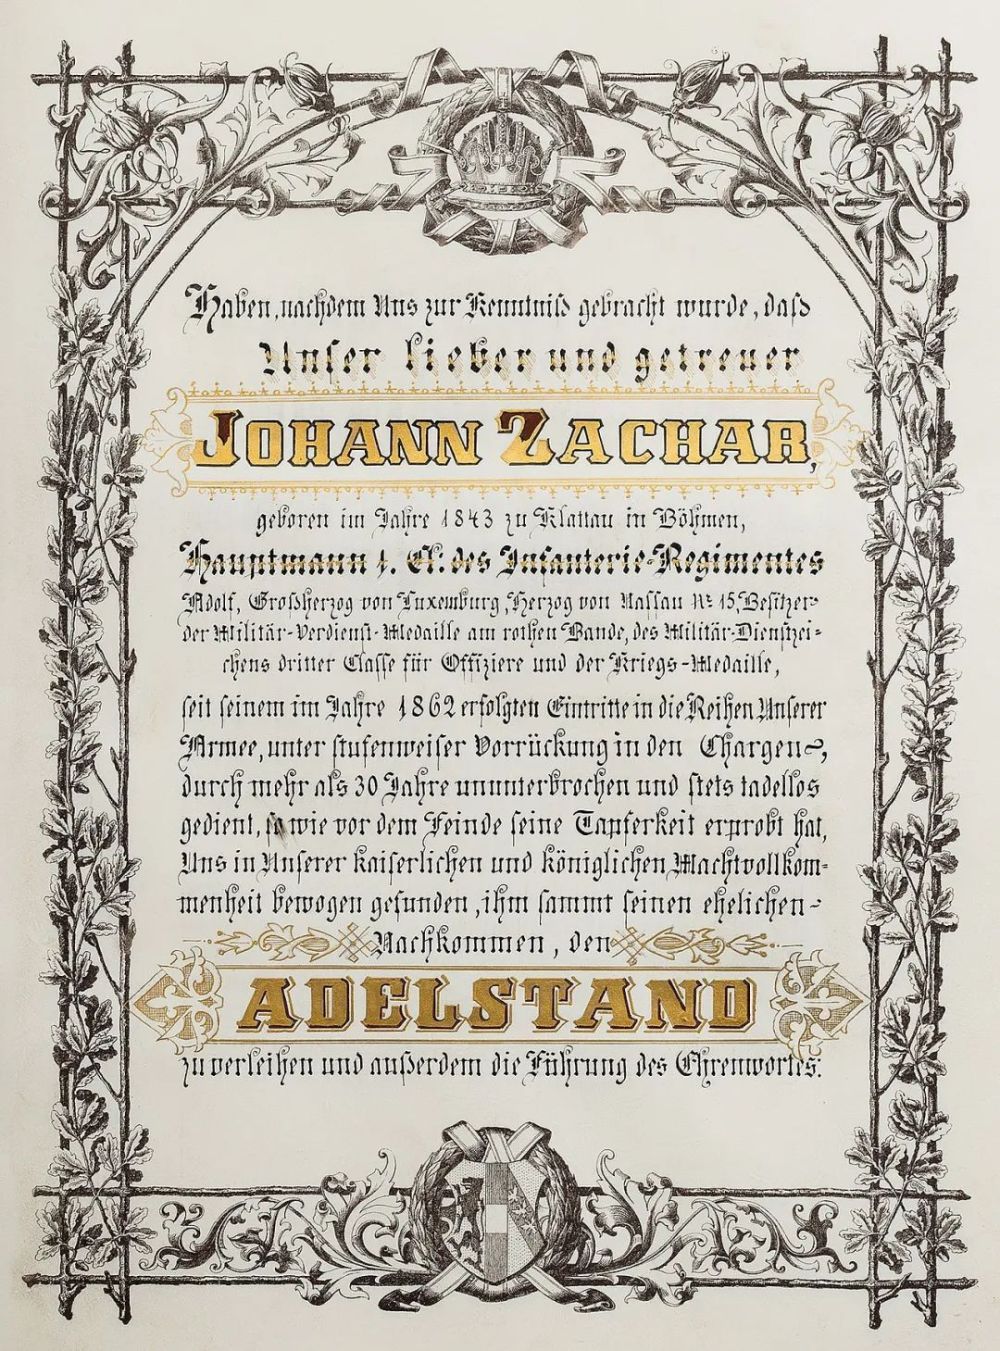 Haben, nachdem Uns zur Kenntniß gebracht wurde, daß
Unser lieber und getreuer
JOHANN ZACHAR,
geboren im Jahre 1843 zu Klattau in Böhmen,
Hauptmann 1. Cl. des Infanterie-Regimentes
Adolf, Großherzog von Luxemburg, Herzog von Nassau № 15, Besitzer
der Militär-Verdienst-Medaille am rothen Bande, des Militär-Dienstzei-
chens dritter Classe für Offiziere und der Kriegs-Medaille,
seit seinem im Jahre 1862 erfolgten Eintritte in die Reihen Unserer
Armee, unter stufenweiser Vorrückung in den Chargen,
durch mehr als 30 Jahre ununterbrochen und stets tadellos
gedient, so wie vor dem Feinde seine Tapferkeit erprobt hat,
Uns in Unserer kaiserlichen und königlichen Machtvollkom-
menheit bewogen gefunden, ihm sammt seinen ehelichen
Nachkommen, den
ADELSTAND
zu verleihen und außerdem die Führung des Ehrenwortes: